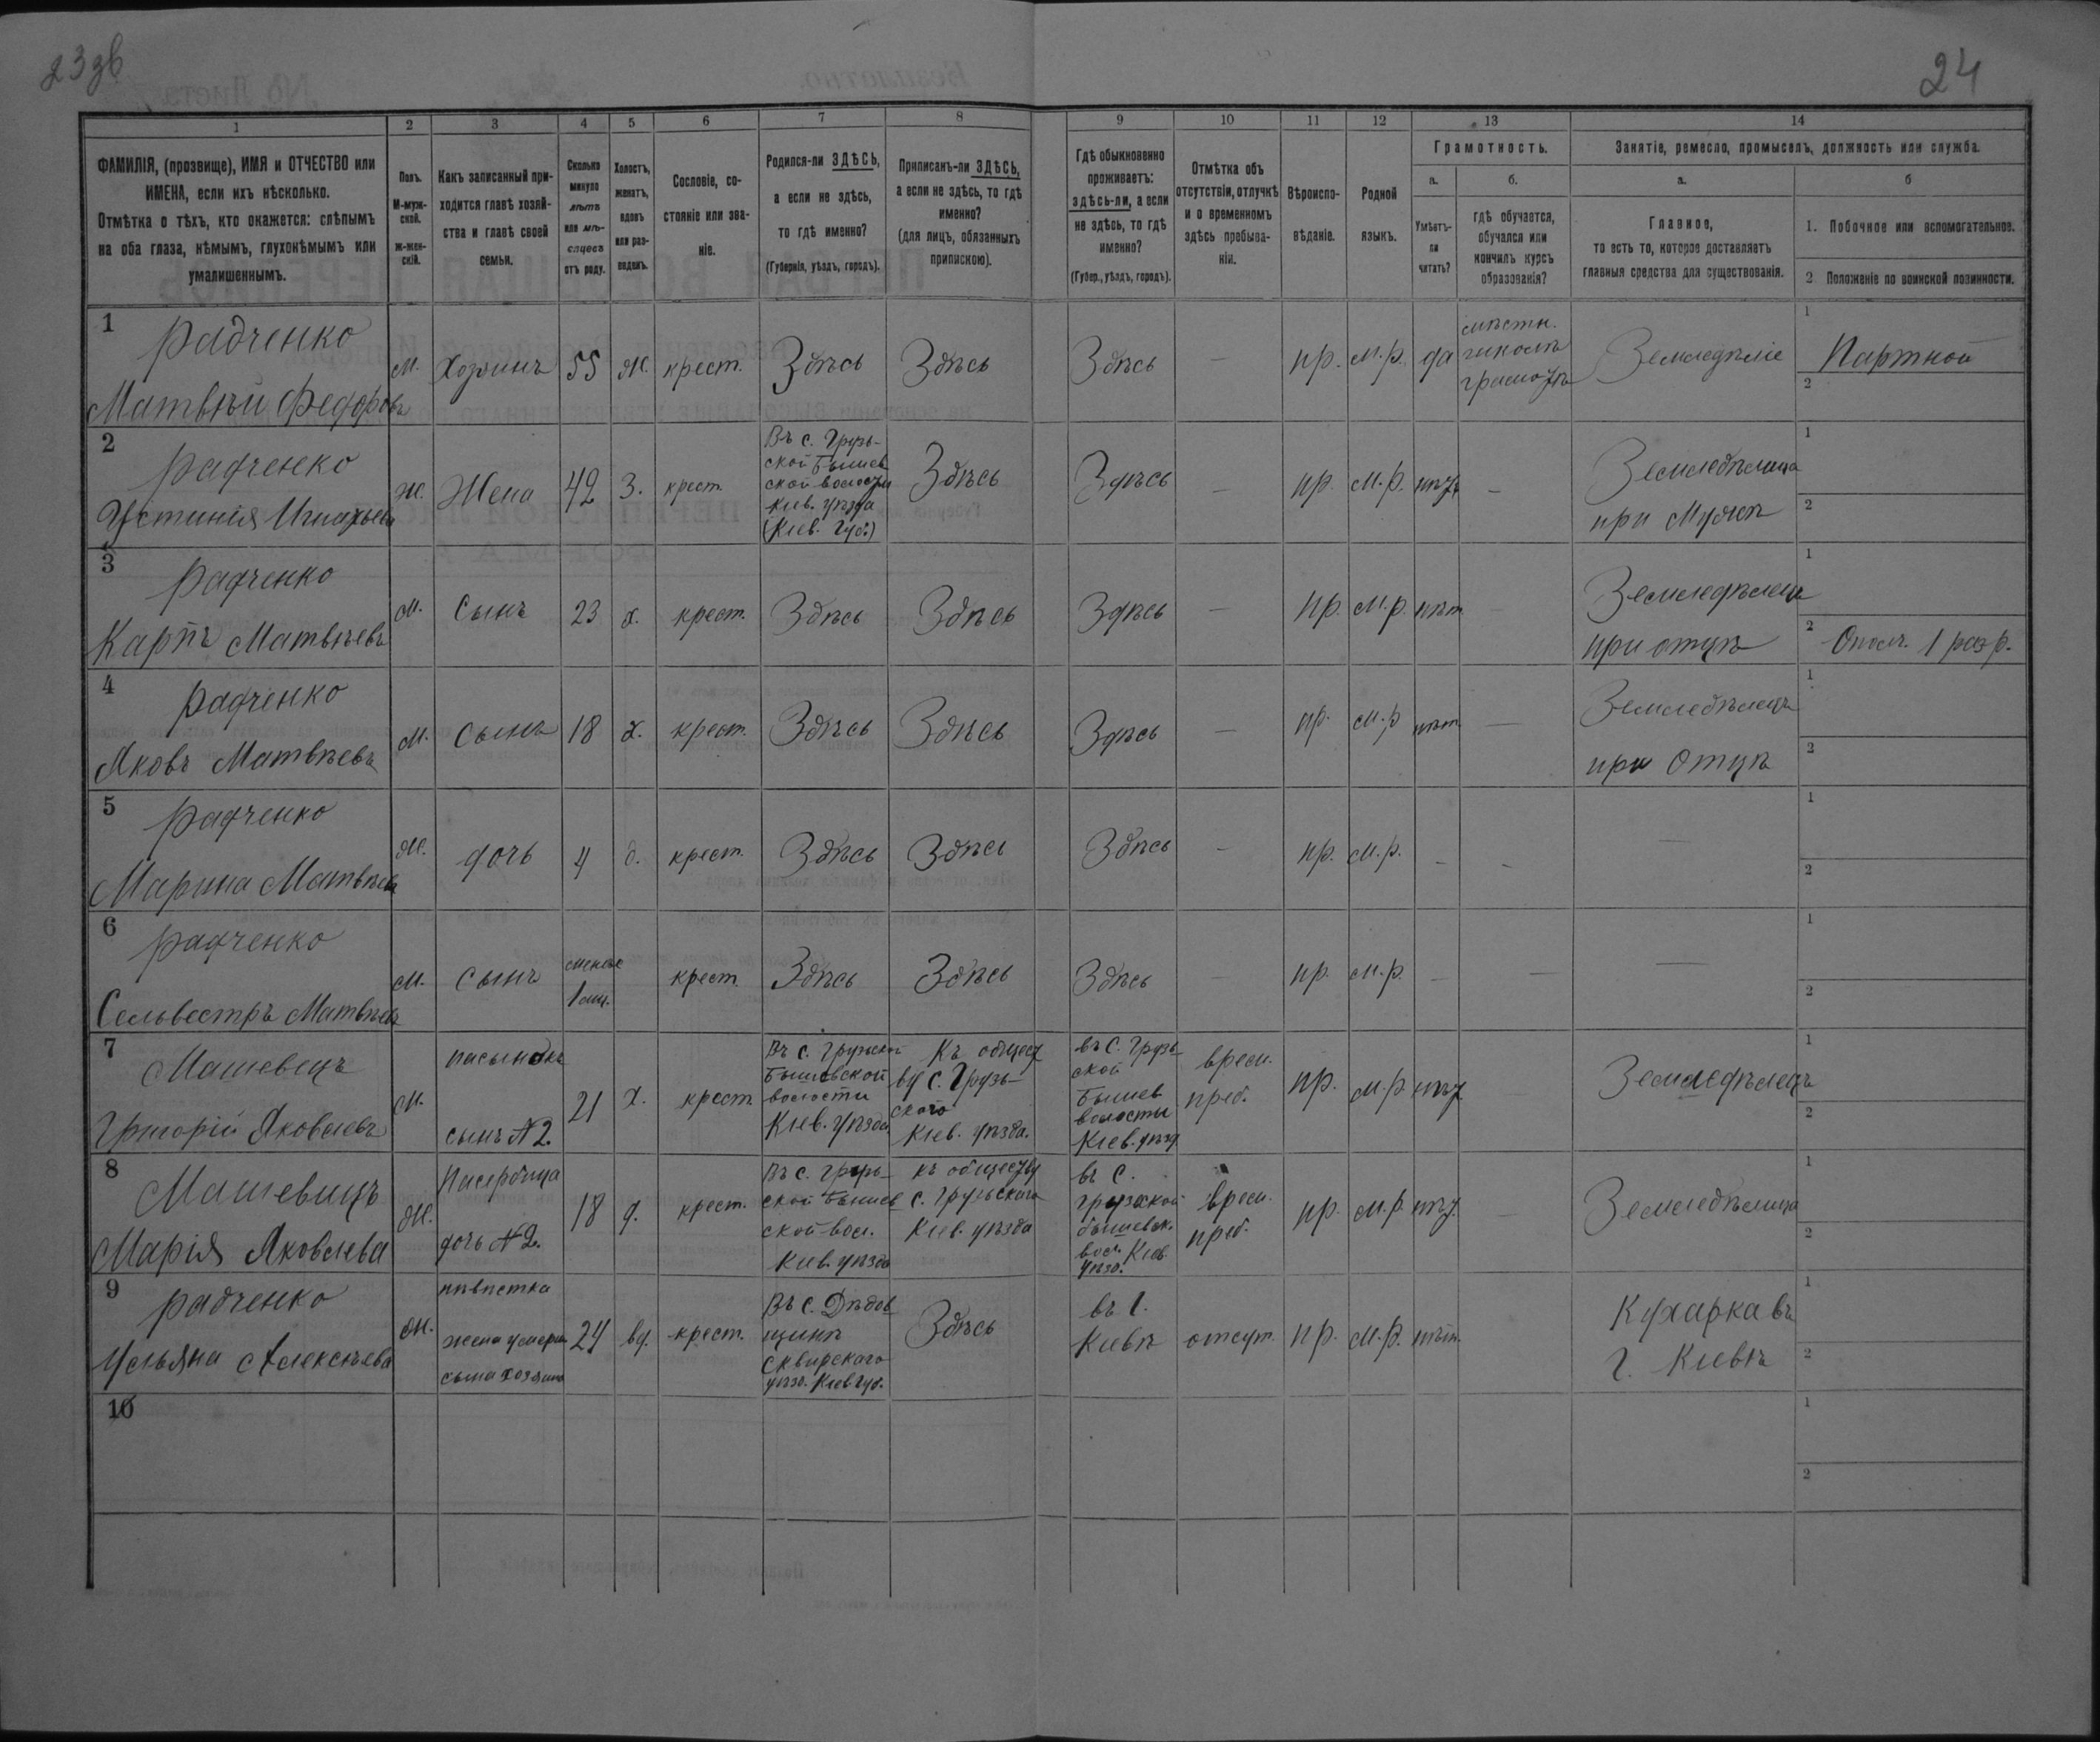 23зв
24
1 2 3 4 5 6 7 8 9 10 11 12 13 14
ФАМИЛІЯ, (прозвище), ИМЯ и ОТЧЕСТВО или
ИМЕНА, если ихъ нѣсколько.
Отмѣтка о тѣхъ, кто окажется: слѣпымъ
на оба глаза, нѣмымъ, глухонѣмымъ или
умалишеннымъ.
Полъ.
М-муж-
ской.
Ж-жен-
скій.
Какъ записанный при-
ходится главѣ хозяй-
ства и главѣ своей
семьи.
Сколько
минуло
лѣтъ
или мѣ-
сяцевъ
отъ роду.
Холостъ,
женатъ,
вдовъ
или раз-
веденъ.
Сословіе, со-
стояніе или зва-
ніе.
Родился-ли ЗДѢСЬ,
а если не здѣсь,
то гдѣ именно?
(Губернія, уѣздъ, городъ).
Приписанъ-ли ЗДѢСЬ,
а если не здѣсь, то гдѣ
именно?
(для лицъ, обязанныхъ
припискою).
Гдѣ обыкновенно
проживаетъ:
здѣсь-ли, а если
не здѣсь, то гдѣ
именно?
(Губер., уѣздъ, городъ).
Отмѣтка объ
отсутствіи, отлучкѣ
и о временномъ
здѣсь пребыва-
ніи.
Вѣроиспо-
вѣданіе.
Родной
языкъ.
Грамотность.
а.
Умѣетъ-
ли
читать?
б.
гдѣ обучается,
обучался или
кончилъ курсъ
образованія?
Занятіе, ремесло, промыселъ, должность или служба.
а.
Главное,
то есть то, которое доставляетъ
главныя средства для существованія.
б
1. Побочное или вспомогательное.
2 Положеніе по воинской повинности.
1
Радченко
Матвѣй Федоровъ
М. Хозяинъ 55 Ж. крест. Здѣсь Здѣсь Здѣсь — пр. м.р. да
Земледѣліе
1 Партной
2
2
Радченко
Устинія Игнатьева
Ж. Жена 42 З. крест.
Въ с. Грузь-
ской Бышев
ской волости
Кіев. уѣзда
(Кіев. Губ.)
Здѣсь Здѣсь — пр. м.р. нѣт —
Земледѣлица
при Мужѣ
1
2
3
Радченко
Карпъ Матвѣевъ
М. Сынъ 23 х. крест. Здѣсь Здѣсь Здѣсь — пр. м.р. нѣт —
Земледѣлецъ
при отцѣ
1
2 Ополч. 1 разр.
4
Радченко
Яковъ Матвѣевъ
М. Сынъ 18 х. крест. Здѣсь Здѣсь Здѣсь — пр. м.р нѣт —
Земледѣлецъ
при Отцѣ
1
2
5
Радченко
Марина Матвѣева
Ж. дочь 4 д. крест. Здѣсь Здѣсь Здѣсь — пр. м.р. — — —
1
2
6
Радченко
Сельвестръ Матвѣевъ
М. Сынъ
менѣе
1 мц.
крест. Здѣсь Здѣсь Здѣсь пр. м.р. — — —
1
2
7
Машевецъ
Григорій Яковлевъ
М.
пасынокъ
сынъ №2.
21 х. крест.
Въ с. Грузской
Бышевской
волости
Кіев. уѣзда
Къ общест
ву с. Грузь-
ского
Кіев. уѣзда.
въ с. Грузь
ской
Бышев
волости
Кіев. уѣзд
врем.
преб.
пр. м.р нѣт
Земледѣлецъ
1
2
8
Машевицъ
Марія Яковлева
Ж.
Пасербица
дочь №2.
18 д. крест.
Въ с. Грузь-
ской Бышев
ской вол.
Кіев. уѣзда
къ обществу
с. Грузьского
Кіев. уѣзда
въ с.
Грузской
бышевск.
вол. Кіев.
уѣзд.
врем.
преб.
пр. м.р. нѣт. —
Земледѣлица
1
2
9
Радченко
Ульяна Алексѣева
Ж.
нѣвѣстка
жена умерш.
сына хозяина
24 вд. крест.
Въ с. Дѣдов
щинѣ
Сквирскаго
уѣзд. Кіев. губ.
Здѣсь
въ г.
Кіевѣ
отсут. пр. м.р. нѣт.
Кухарка въ
г. Кіевѣ
1
2
10
1
2